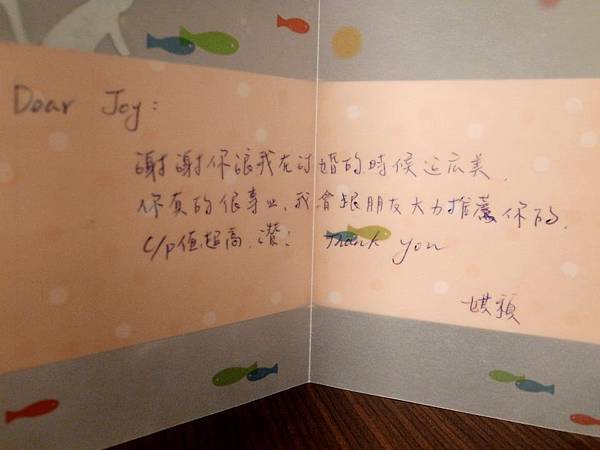 Dear Joy:
謝謝你讓我在訂婚的時候这庅美.
你真的很專业,我會跟朋友大力推薦你的.
C/P值超高,讚! Thank you
穎